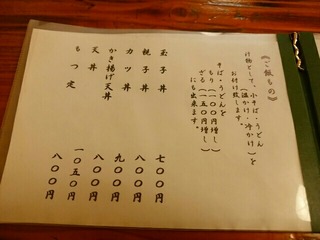 《ご飯もの》
け物として、小そば・うどん
(温かけ・冷かけ)を
お付け致します。
そば・うどんを
もり(一〇〇円増し)
ざる(一五〇円増し)
にも出来ます。
玉子丼 七〇〇円
親子丼 八〇〇円
カツ丼 九〇〇円
かき揚げ天丼 八〇〇円
天丼 一〇五〇円
もつ定 八〇〇円